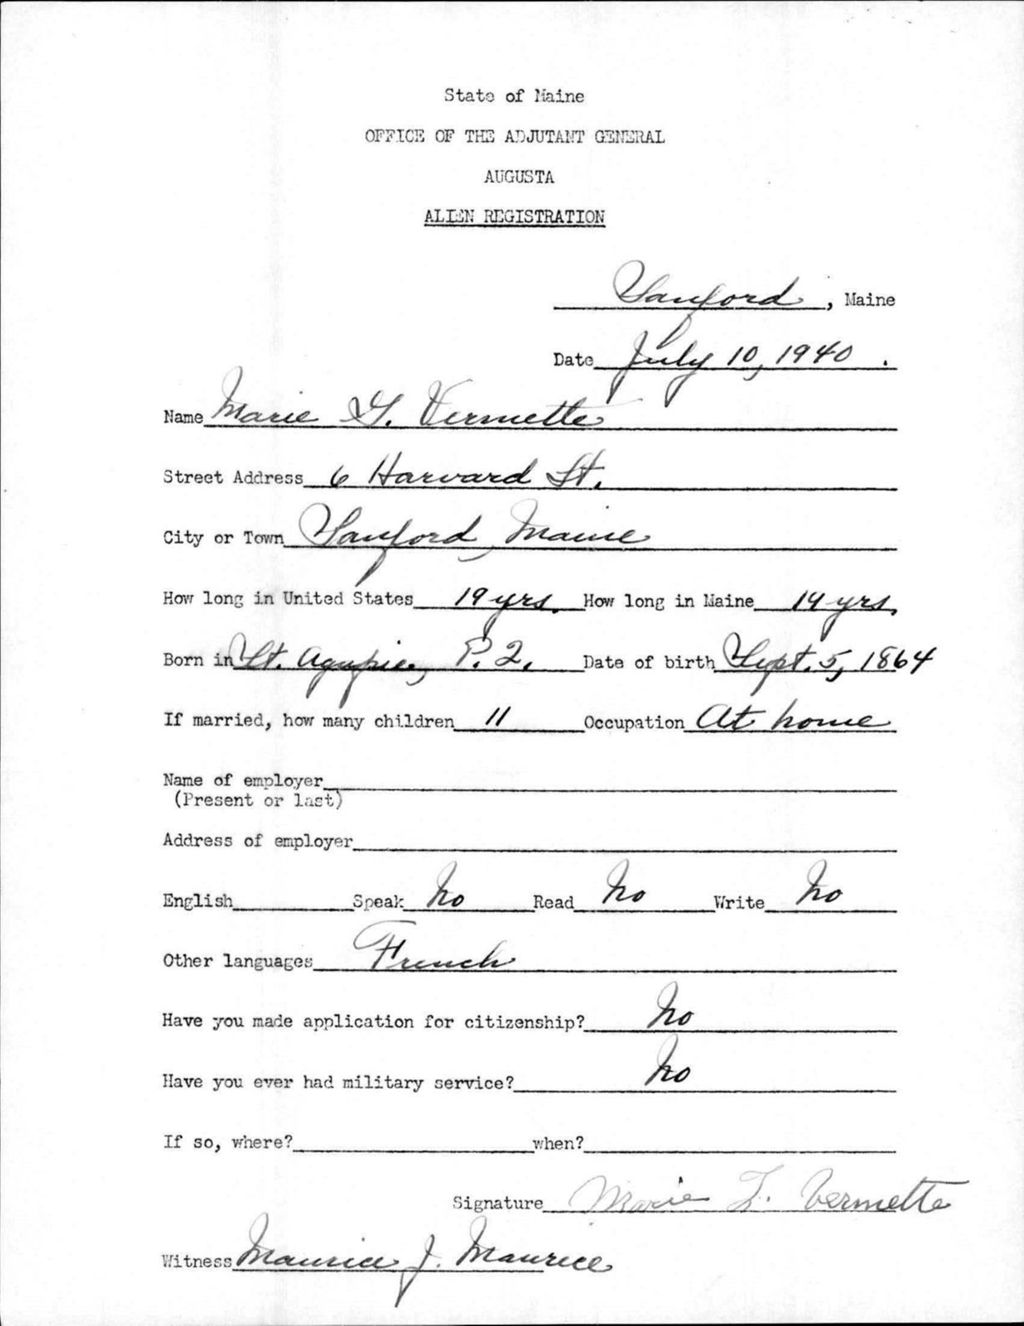 State of Maine
OFFICE OF THE ADJUTANT GENERAL
AUGUSTA
ALIEN REGISTRATION
Sanford, Maine
Date July 10, 1940.
Name Marie Vermette
Street Address 6 Harvard St.
City or Town Sanford, Maine
How long in United States 19 yrs. How long in Maine 14 yrs.
Born in St. Agapie, P.Q. Date of birth Sept. 5, 1864
If married, how many children 11 Occupation At home
Name of employer
(Present or last)
Address of employer
English Speak No Read No Write No
Other languages French
Have you made application for citizenship? No
Have you ever had military service? No
If so, where? when?
Signature Marie Vermette
Witness Maurice J. Maurice